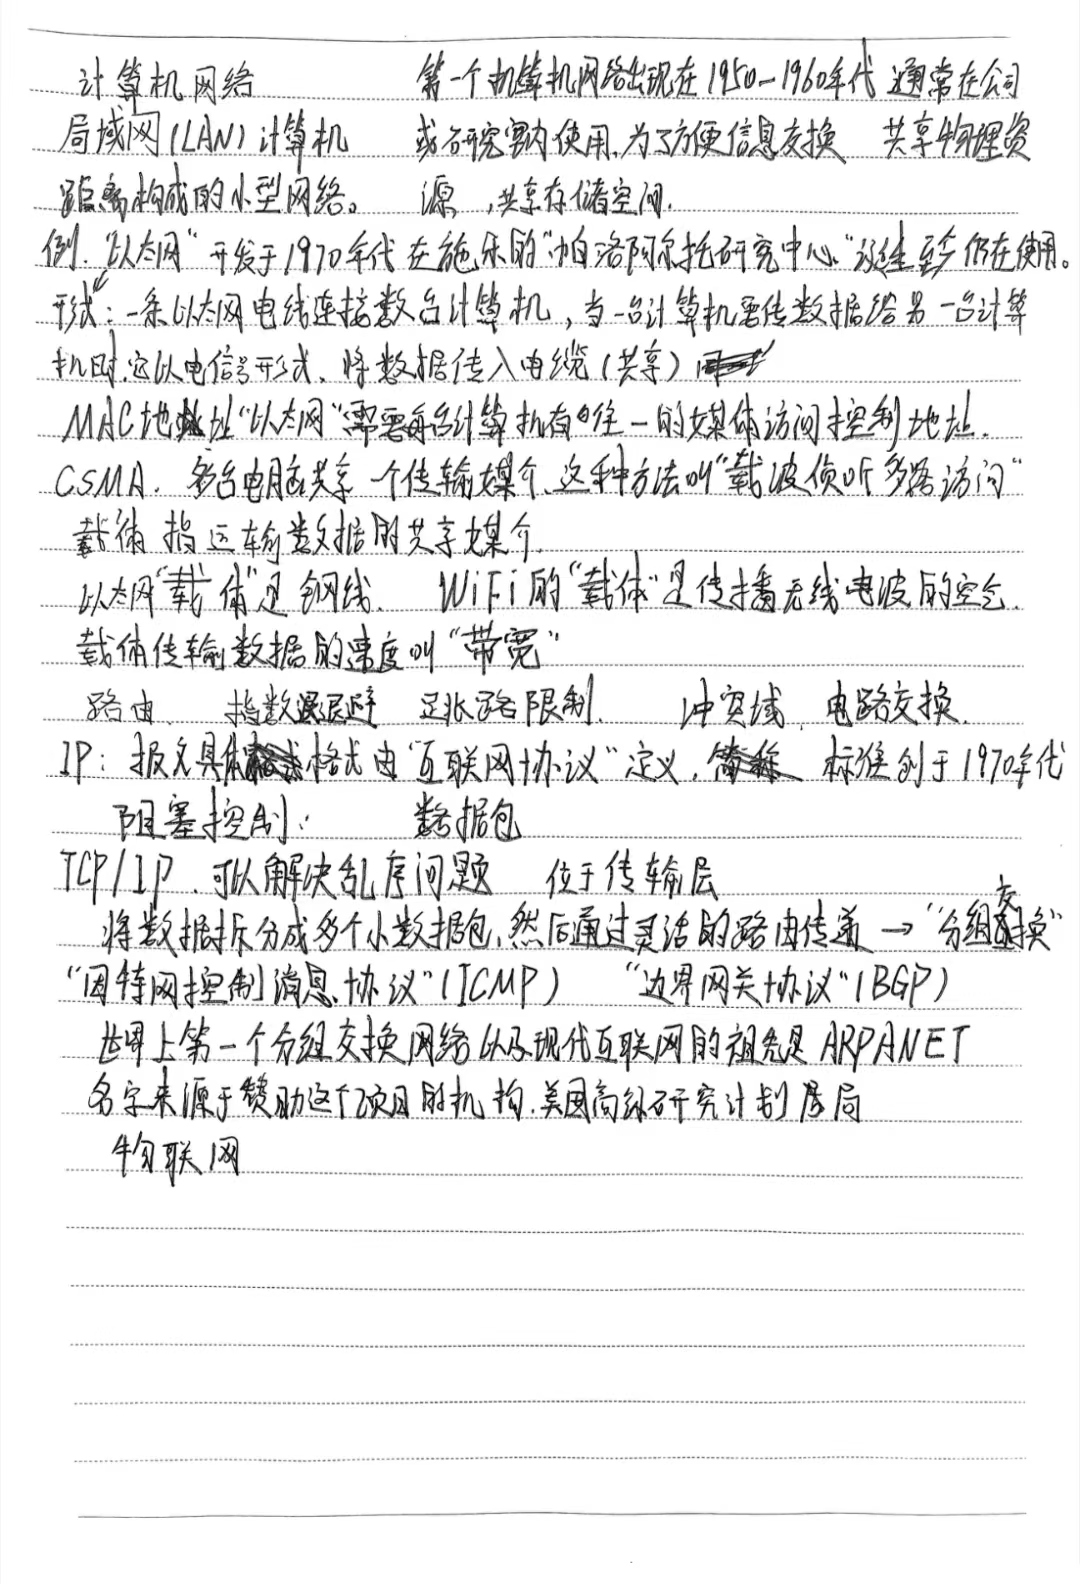 计算机网络 第一个机算机网络出现在1950-1960年代 通常在公司
局域网(LAN)计算机 或研究室内使用,为了方便信息交换 共享物理资
距离构成的小型网络。 源,共享存储空间.
例.“以太网”开发于1970年代在施乐的“帕洛阿尔托研究中心”诞生至今仍在使用。
形式:一条以太网电线连接数台计算机,当一台计算机要传数据给另一台计算
机时,它以电信号形式,将数据传入电缆(共享)
MAC地址“以太网”需要每台计算机有唯一的媒体访问控制地址.
CSMA.多台电脑共享一个传输媒介.这种方法叫“载波侦听多路访问”
载体 指运输数据的共享媒介.
以太网“载体”是铜线. WiFi的“载体”是传播无线电波的空气.
载体传输数据的速度叫“带宽”
路由. 指数退避 跳路限制. 冲突域. 电路交换.
IP:报文具体格式由“互联网协议”定义. 标准创于1970年代
阻塞控制: 数据包
TCP/IP.可以解决乱序问题 位于传输层
将数据拆分成多个小数据包,然后通过灵活的路由传递→“分组交换”
“因特网控制消息协议”(ICMP) “边界网关协议”(BGP)
世界上第一个分组交换网络以及现代互联网的祖先是ARPANET
名字来源于赞助这个项目的机构.美国高级研究计划局
物联网